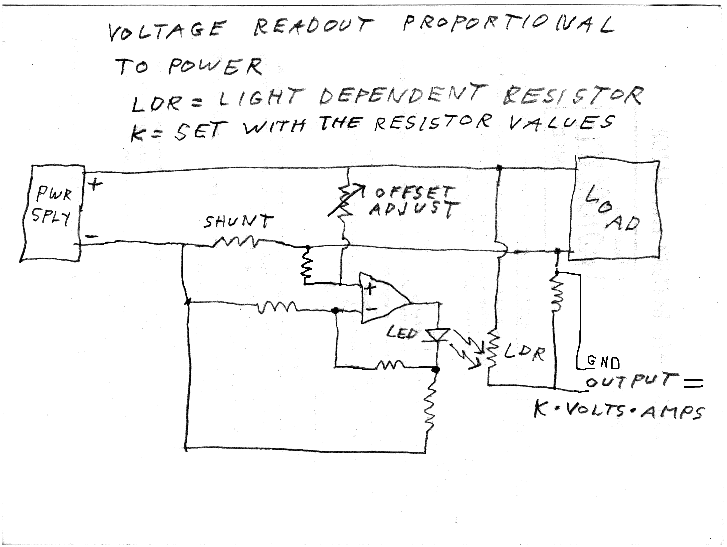 VOLTAGE READOUT PROPORTIONAL
TO POWER
LDR = LIGHT DEPENDENT RESISTOR
K = SET WITH THE RESISTOR VALUES
PWR
SPLY
+
-
SHUNT
OFFSET
ADJUST
LOAD
+
-
LED
LDR
GND
OUTPUT =
K • VOLTS • AMPS